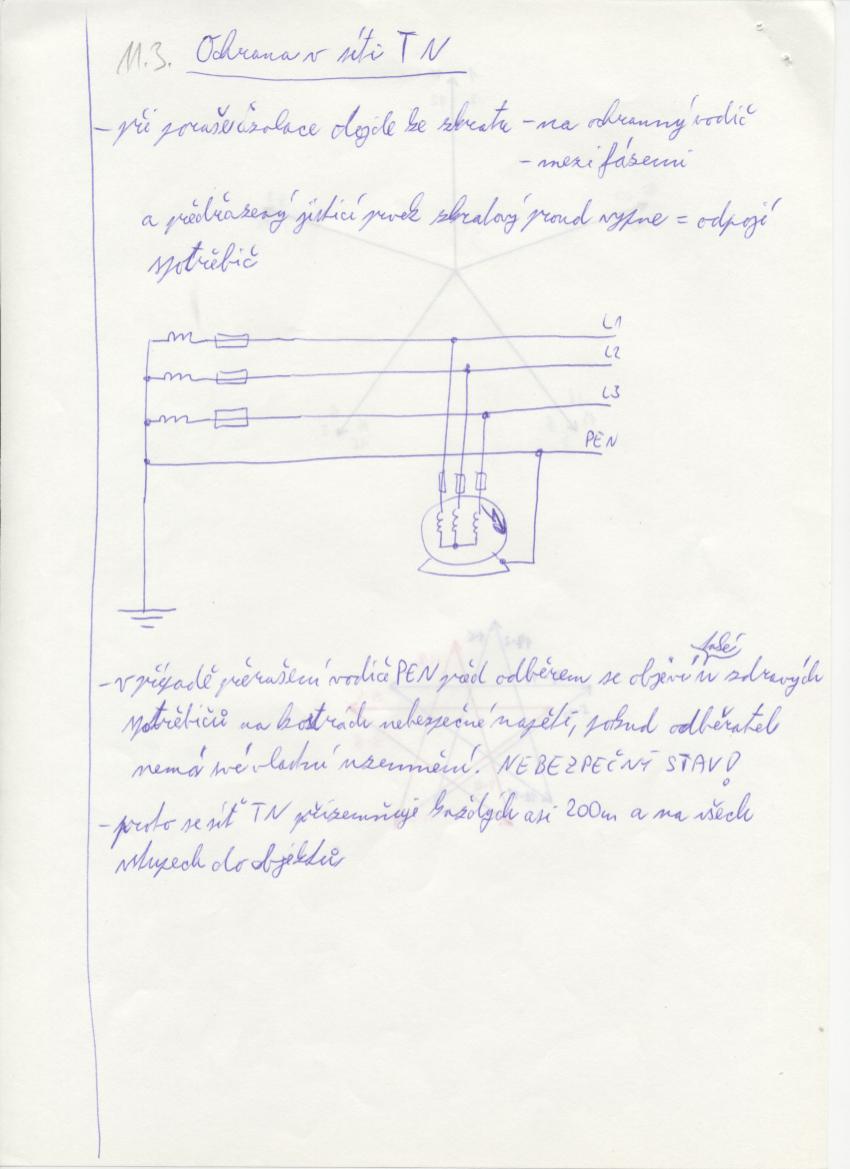 11.3. Ochrana v síti TN
- při poruše izolace dojde ke zkratu - na ochranný vodič
- mezi fázemi
a předřazený jistící prvek zkratový proud vypne = odpojí
spotřebič
L1
L2
L3
PEN
také
- v případě přerušení vodiče PEN před odběrem se objeví u zdravých
spotřebičů na kostrách nebezpečné napětí, pokud odběratel
nemá své vlastní uzemnění. NEBEZPEČNÝ STAV!
- proto se síť TN přizemňuje každých asi 200m a na všech
vstupech do objektů